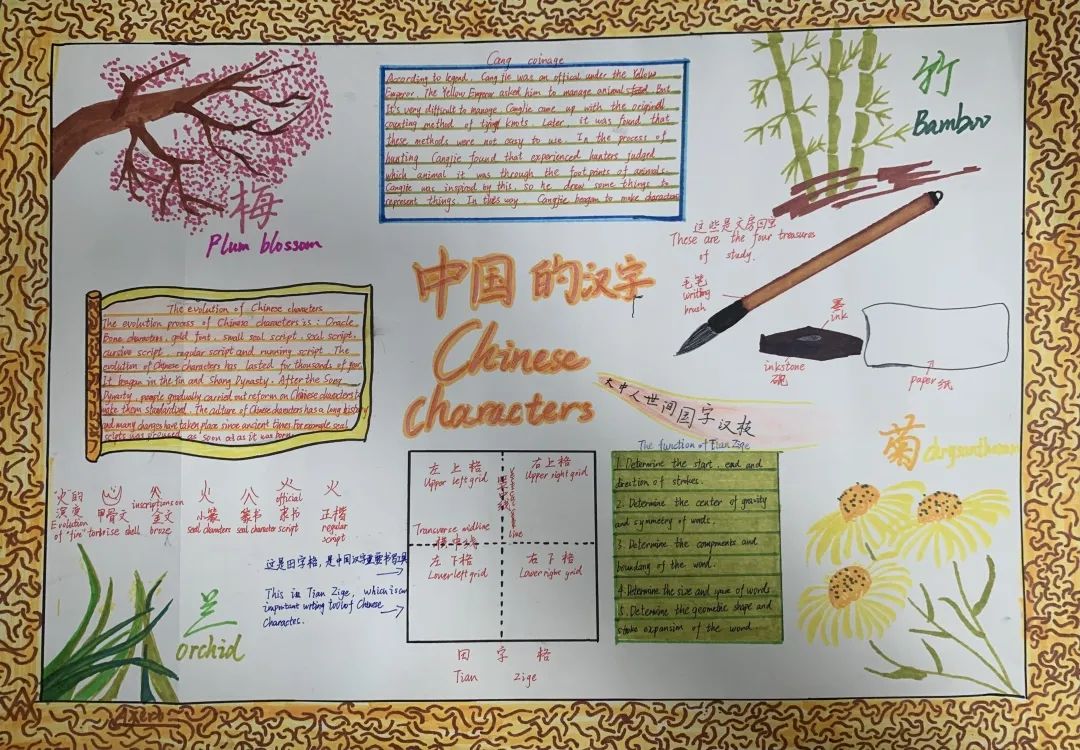 Cang coinage
According to legend, Cang jie was an offical under the Yellow
Emperor. The Yellow Emperor asked him to manage animals But
It's very difficult to manage. Cangjie came up with the original
counting method of tying knots. Later, it was found that
these methods were not easy to use. In the process of
hunting Cangjie found that experienced hunters judged
which animal it was through the footprints of animals.
Cangjie was inspired by this, so he drew some things to
represent things. In this way Cangjie beagan to make characters
梅
Plum blossom
竹
Bamboo
中国的汉字
Chinese
characters
这些是文房四宝
These are the four treasures
of study.
毛笔
writing
brush
墨
ink
inkstone
砚
paper 纸
The evolution of Chinese characters
The evolution process of Chinese characters is: Oracle
Bone characters, gold font, small seal script, seal script,
cursive script, regular script and running script. The
evolution of Chinese characters has lasted for thousands of
It beagan in the Yin and Shang Dynasty. After the Song
Dynasty, people gradually carried out reform on Chinese characters
make them standardized. The culture of Chinese characters has a long history
and many changes have taken place since ancient times For example seal
as soon as it was born
大中人世间国字汉枝
菊
火的
演变
Evolution
of "fire"
甲骨文
tortorise shell
inscriptions on
金文
broze
火
小篆
seal characters
火
篆书
seal character
official
隶书
script
火
正楷
regular
script
这是田字格，是中国汉字重要书写工具
This is Tian Zige, which is an
important writing tool of Chinese
Character.
左上格
Upper left grid
右上格
Upper right grid
line
Transverse midline
横中线
左下格
Lower left grid
右下格
Lower right grid
田 字 格
Tian Zige
The function of Tian Zige
1. Determine the start, end and
direction of strokes.
2. Determine the center of gravity
and symmetry of words.
3. Determine the components and
boundary of the word.
4. Determine the size and space of words
5. Determine the geometric shape and
stroke expansion of the word.
兰
orchid